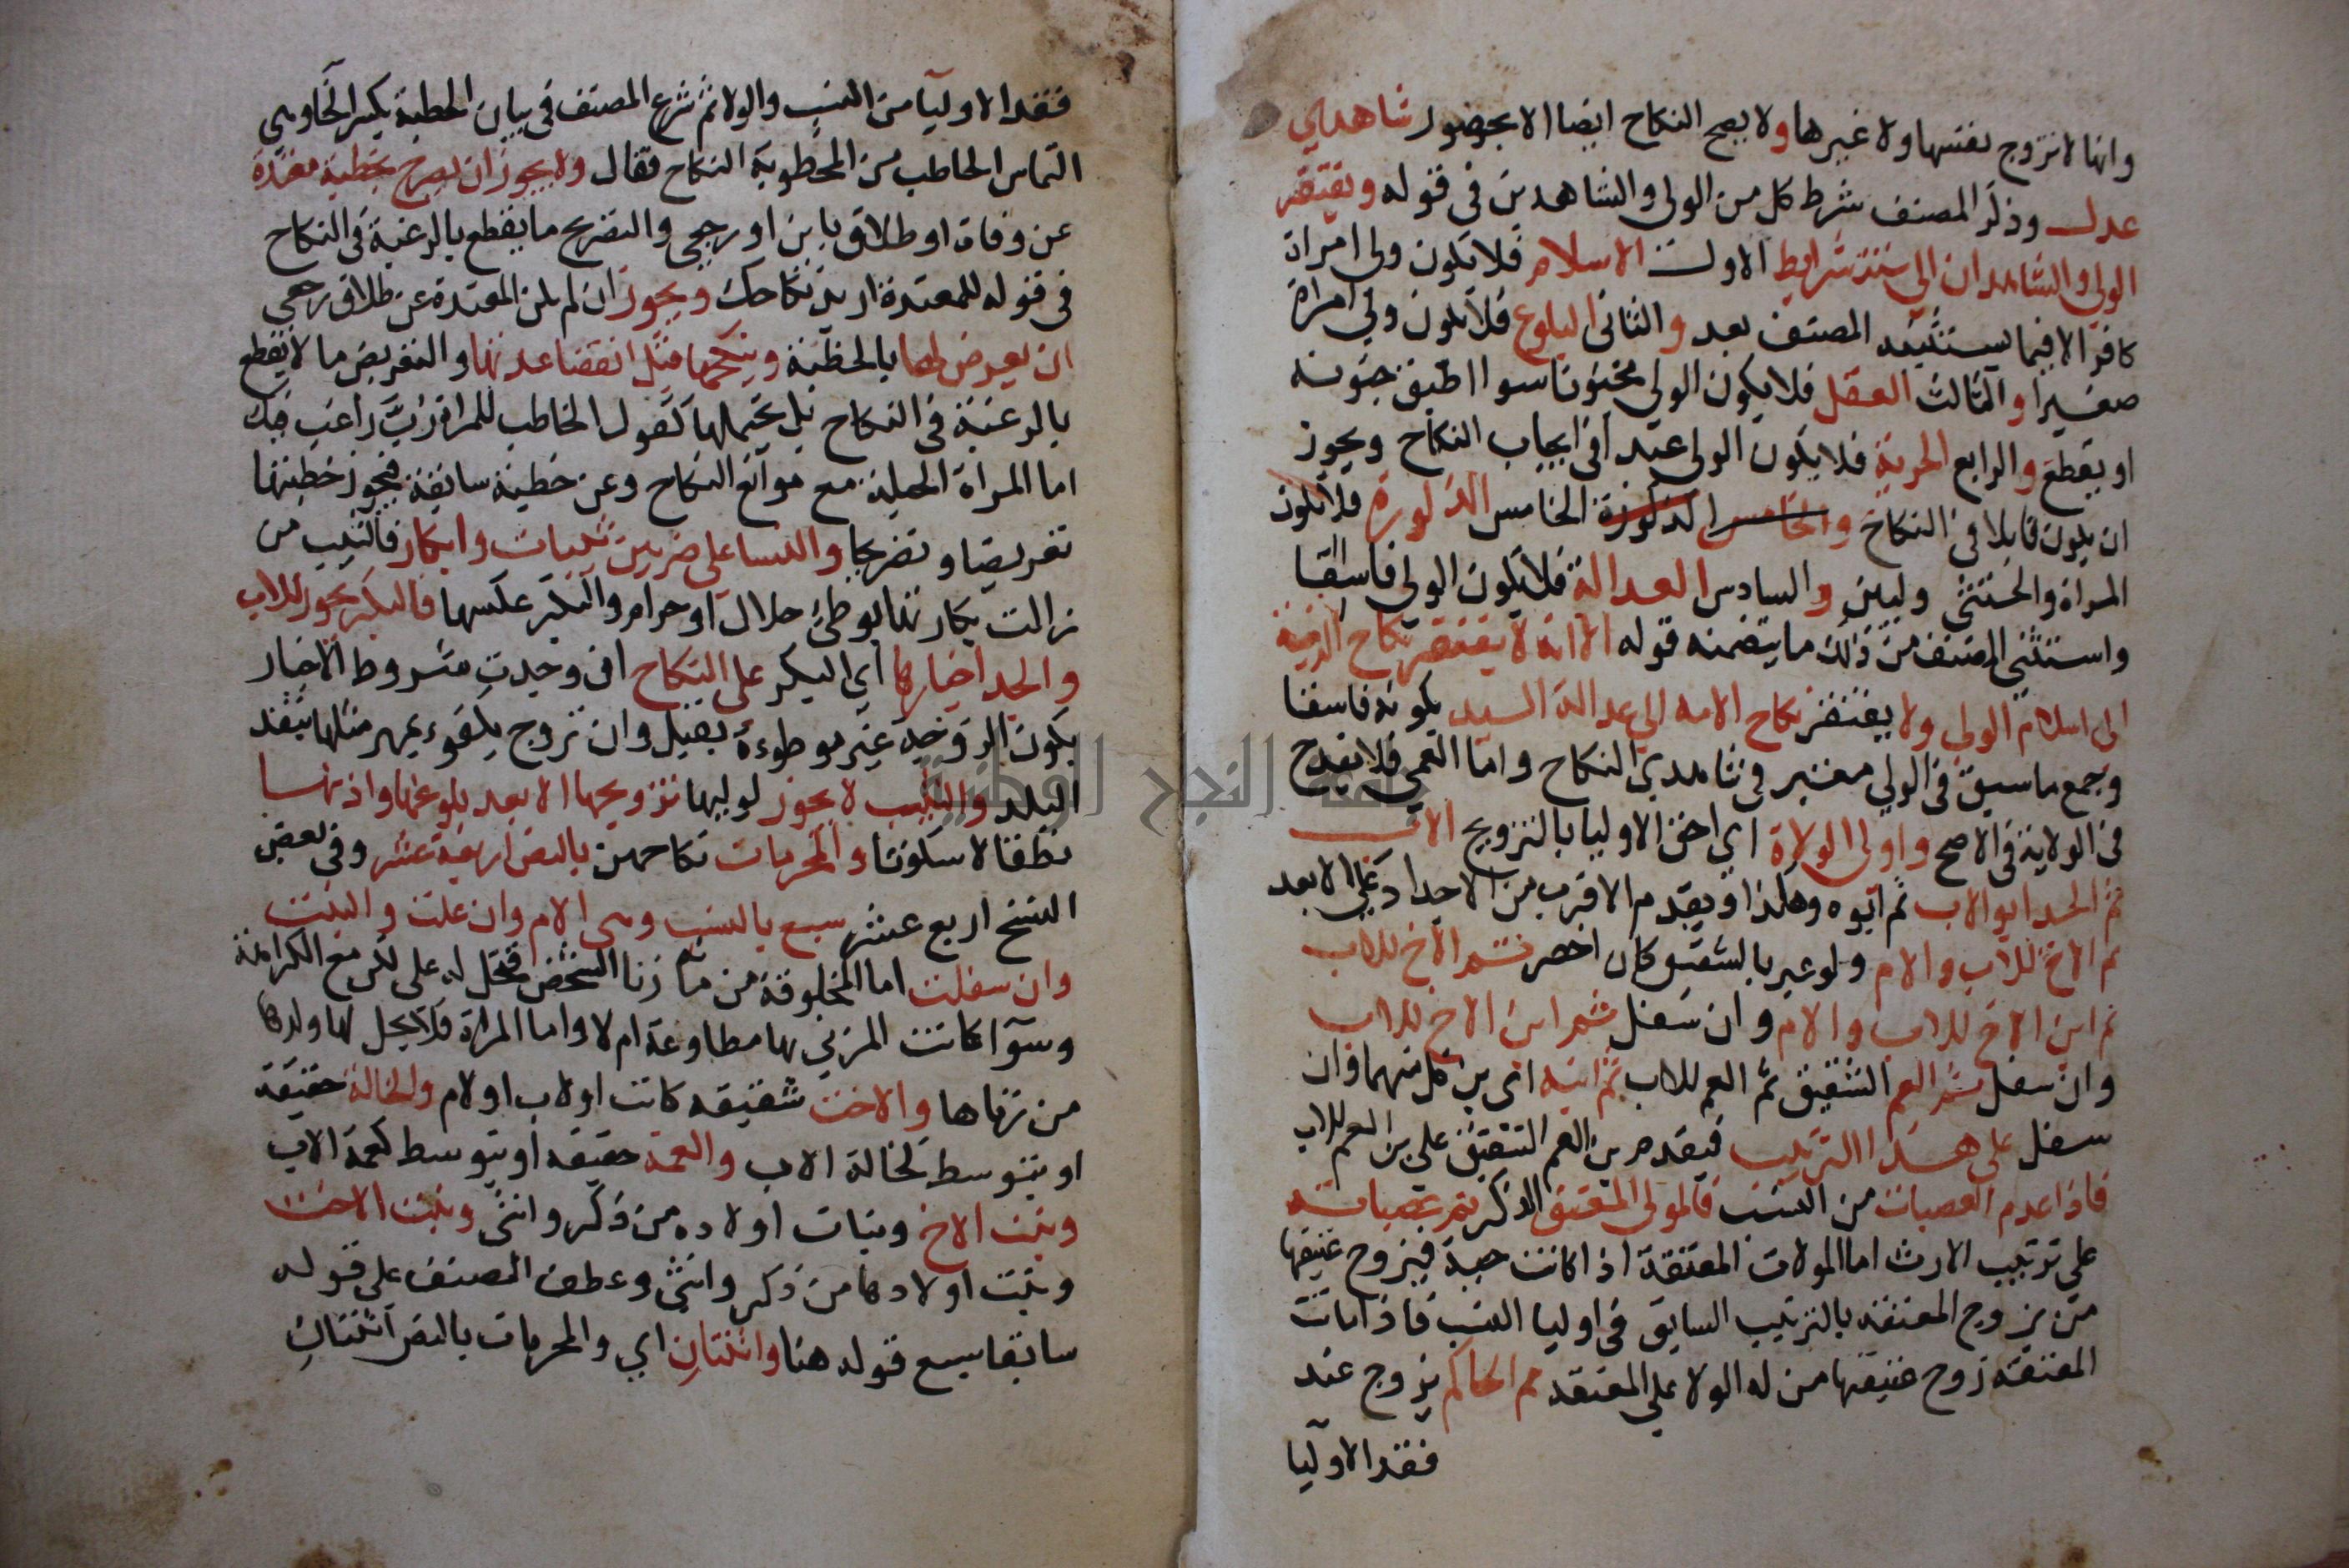 وانها لا تزوج نفسها ولا غيرها ولا يصح النكاح ايضا الا بحضور شاهدي
عدل وذكر المصنف شرط كل من الولي والشاهدين في قوله ويفتقر
الولي والشاهدان الي ستة شرايط الاول الاسلام فلا يكون ولي امراة
كافرا الا فيما يستثنيه المصنف بعد والثاني البلوغ فلا يكون ولي امراة
صغيرا والثالث العقل فلا يكون الولي مجنونا سوا اطبق جنونه
او يقطع والرابع الحرية فلا يكون الولي عبدا في ايجاب النكاح ويجوز
ان يكون قابلا في النكاح والخامس الذكورة الخامس الذكورة فلا تكون
المراة والخنثي وليين والسادس العدالة فلا يكون الولي فاسقا
واستثني المصنف من ذلك ما يتضمنه قوله الا انه لا يفتقر نكاح الذمية
الى اسلام الولي ولا يفتقر نكاح الامه الي عدالة السيد بكونه فاسقا
وجمع ما سبق في الولي معتبر في شاهدي النكاح واما العمي فلا يقدح
في الولاية في الاصح واولى الولاة اي احق الاوليا بالتزويج الاب
ثم الجد ابو الاب ثم ابوه وهكذا ويقدم الاقرب من الاجداد علي الابعد
ثم الاخ للاب والام ولو عبر بالشقيق كان اخصر ثم الاخ للاب
ثم ابن الاخ للاب والام وان سفل ثم ابن الاخ للاب
وان سفل ثم العم الشقيق ثم العم للاب ثم ابنه اي بن كل منهما وان
سفل على هذا الترتيب فيقدم بن العم الشقيق علي بن العم للاب
فاذا عدم العصبات من النسب فالمولي المعتق الذكر ثم عصباته
علي ترتيب الارث اما المولاة المعتقة اذا كانت حية فيزوج عتيقها
من يزوج المعتقه بالترتيب السابق في اوليا النسب فاذا ماتت
المعتقة زوج عتيقها من له الولا علي المعتقه ثم الحاكم يزوج عند
فقد الاوليا
فقد الاوليآ من النسب والولا ثم شرع المصنف في بيان الخطبة بكسر الخآ وهي
التماس الخاطب من المخطوبة النكاح فقال ولا يجوز ان يصرح بخطبة معتدة
عن وفاة او طلاق باين او رجعي والتصريح ما يقطع بالرغبة في النكاح
في قوله للمعتدة اريد نكاحك ويجوز ان لم تكن المعتدة عن طلاق رجعي
ان يعرض لها بالخطبة وينكحها قبل انقضا عدتها والتعريض ما لا يقطع
بالرغبة في النكاح بل يحتملها كقول الخاطب للمراة رب راغب فيك
اما المراة الخلية مع موانع النكاح وعن خطبة سابقة فيجوز خطبتها
تعريضا وتصريحا والنسا علي ضربين ثيبات وابكار فالثيب من
زالت بكارتها بوطئ حلال او حرام والبكر عكسها فالبكر يجوز للاب
والجد اجبارها اي البكر على النكاح ان وجدت شروط الاجبار
بكون الزوجة غير موطوءة بقبل وان تزوج بكفوء بمهر مثلها بنقد
البلد والثيب لا يجوز لوليها تزويجها الا بعد بلوغها واذنها
نطقا لا سكوتا والمحرمات نكاحهن بالنص اربعة عشر وفي بعض
النسخ اربع عشر سبع بالنسب وهي الام وان علت والبنت
وان سفلت اما المخلوقة من مآء زنا الشخص فتحل له على لكن مع الكراهة
وسوآ كانت المزني بها مطاوعة ام لا واما المراة فلا يحل لها ولدها
من زناها والاخت شقيقه كانت او لاب او لام والخالة حقيقة
او بتوسط كخالة الاب والعمة حقيقه او بتوسط كعمة الاب
وبنت الاخ وبنات اولاده من ذكر وانثي وبنت الاخت
وبنت اولادها من ذكر وانثي وعطف المصنف علي قوله
سابقا سبع قوله هنا واثنتان اي والمحرمات بالنص اثنتان